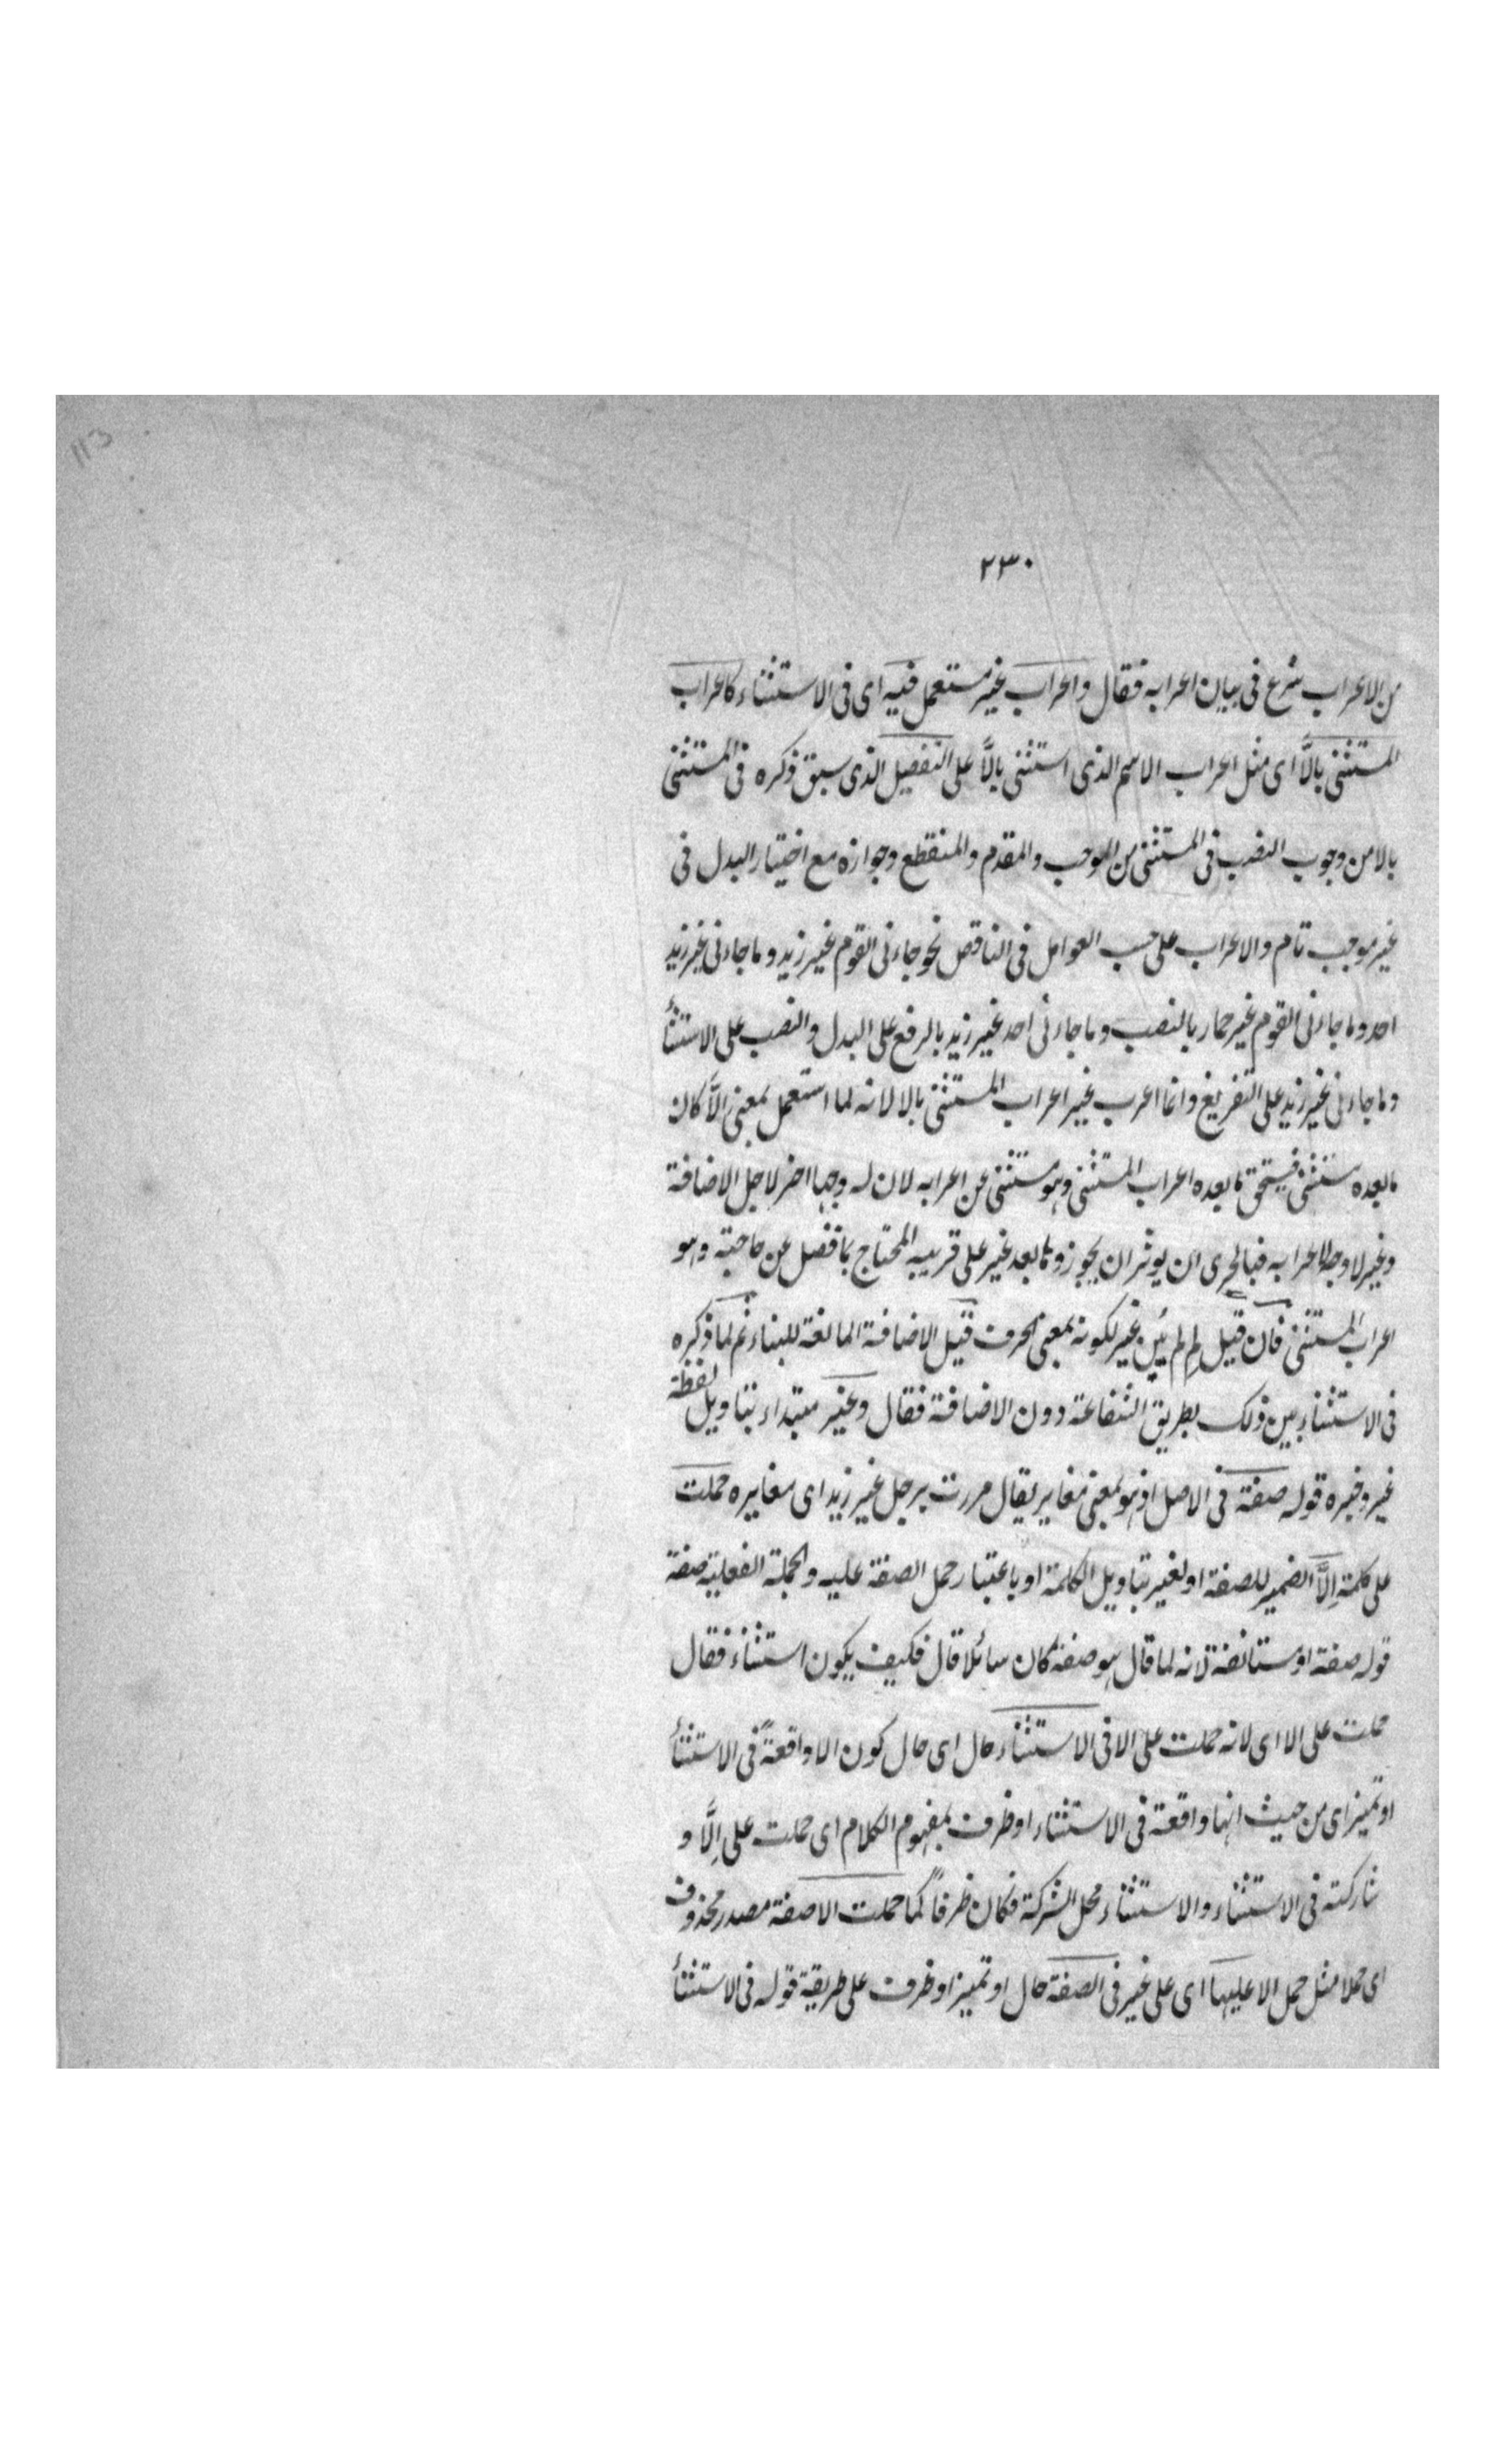 113
٢٣٠
من الاعراب شرع فى بيان اعرابه فقال واعراب غير مستعمل فيه اى فى الاستثناء كاعراب
المستثنى بالّا اى مثل اعراب الاسم الذى استثنى بالّا على التفصيل الذى سبق ذكره فى المستثنى
بالا من وجوب النصب فى المستثنى من الموجب والمقدم والمنقطع وجوازه مع اختيار البدل فى
غير موجب تام والاعراب على حسب العوامل فى الناقص نحو جاءنى القوم غير زيد وما جاءنى غير زيد
احد وما جاءنى القوم غير حمار بالنصب وما جاءنى احد غير زيد بالرفع على البدل والنصب على الاستثنأ
وما جاءنى غير زيد على التفريغ وانما اعرب غير اعراب المستثنى بالا لانه لما استعمل بمعنى الّا كان
ما بعده مستثنى فيستحق ما بعده اعراب المستثنى وهو مستثنى عن اعرابه لان له وجها اخر لاجل الاضافة
وغير لا وجه لاعرابه فبالحرى ان يوثر ان يجوز وما بعد غير على قريبه المحتاج بما فضل عن حاجته وهو
اعراب المستثنى فان قيل لم لم يبن غير لكونه بمعنى الحرف قيل الاضافة المانعة للبناء ثم لما ذكره
فى الاستثناء بين ذلك بطريق الشفاعة دون الاضافة فقال وغير مبتداء بتاويل لفظة
غير وخبره قوله صفة فى الاصل اذ هو بمعنى مغاير يقال مررت برجل غير زيد اى مغايره حملت
على كلمة اِلَّا الضمير للصفة او لغير بتاويل الكلمة او باعتبار حمل الصفة عليه والجملة الفعلية صفة
قوله صفة او مستانفة لانه لما قال هو صفة كان سائلا قال فكيف يكون استثناء فقال
حملت على الا اى لانه حملت على الا فى الاستثناء حال اى حال كون الا واقعةً فى الاستثنأ
او تميز اى من حيث انها واقعة فى الاستثناء او ظرف بمفهوم الكلام اى حملت على اِلَّا و
شاركته فى الاستثناء والاستثناء محل الشركة فكان ظرفاً كما حملت الا صفة مصدر محذوف
اى حملا مثل حمل الا عليها اى على غير فى الصفة حال او تمييز او ظرف على طريقة قوله فى الاستثنأ